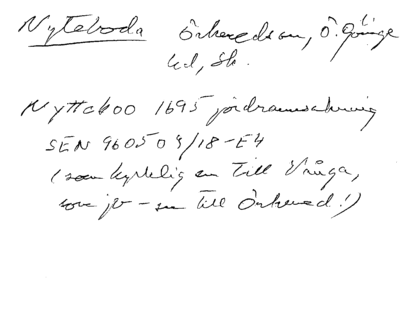 Nyteboda Örkeneds sn, Ö. Göinge
hd, Sk.
Nytteboo 1695 jordrannsakning
SEN 960504/18-E4
(som kyrklig en till Vånga,
som jb - en till Örkened!)